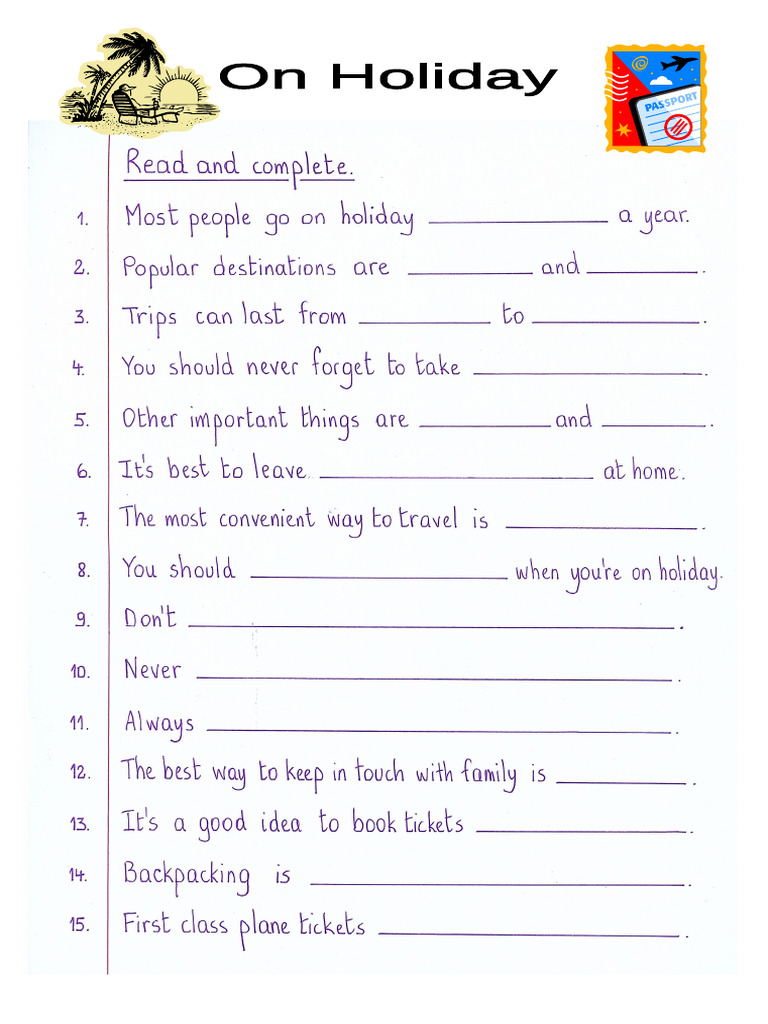 On Holiday
PASSPORT
Read and complete.
1. Most people go on holiday ____________ a year.
2. Popular destinations are ____________ and ____________.
3. Trips can last from ____________ to ____________.
4. You should never forget to take ____________.
5. Other important things are ____________ and ____________.
6. It's best to leave ____________ at home.
7. The most convenient way to travel is ____________.
8. You should ____________ when you're on holiday.
9. Don't ____________.
10. Never ____________.
11. Always ____________.
12. The best way to keep in touch with family is ____________.
13. It's a good idea to book tickets ____________.
14. Backpacking is ____________.
15. First class plane tickets ____________.